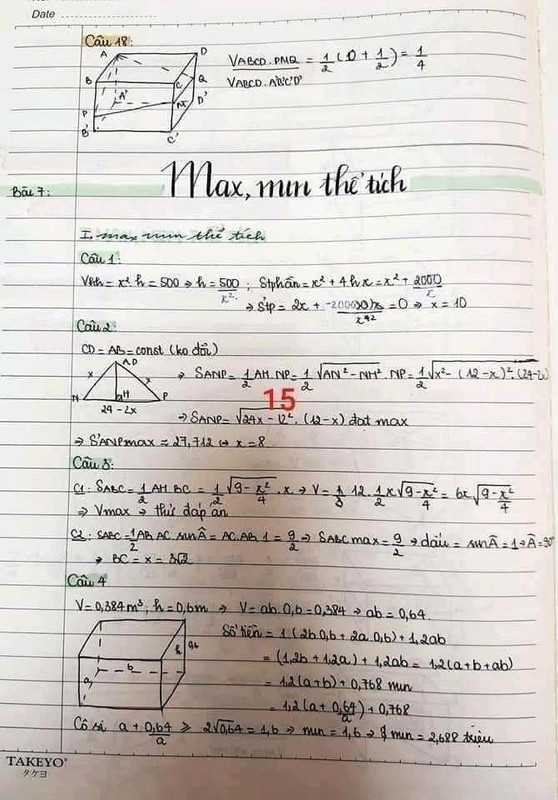 Date
Câu 18:
A D B C Q A' M D' P B' C'
VABCD.PMQ = 1/2 (0 + 1/2) = 1/4
VABCD.A'B'C'D'
Bài 7: Max, min thể tích
I. max min thể tích
Câu 1:
Vhh = x².h = 500 → h = 500/x² ; Stphần = x² + 4hx = x² + 2000/x
→ S'tp = 2x + -2000/x² = 0 → x = 10
Câu 2:
CD = AB = const (ko đổi)
A,D x x N H P 24 - 2x
→ SANP = 1/2 AH.NP = 1/2 √AN² - NH² . NP = 1/2 √x² - (12 - x)² . (24-2x)
15
→ SANP = √24x - 12² . (12 - x) đạt max
→ SANPmax = 27,712 ↔ x = 8
Câu 3:
C1: SABC = 1/2 AH.BC = 1/2 √9 - x²/4 . x → V = 1/3 12. 1/2 x √9 - x²/4 = 6x √9 - x²/4
→ Vmax → thử đáp án
C2: SABC = 1/2 AB.AC sin = AC.AB.1 = 9/2 → SABCmax = 9/2 → dấu = sin = 1 →  = 90°
→ BC = x = 3√2
Câu 4
V = 0,384 m³, h = 0,6m → V = ab.0,6 = 0,384 → ab = 0,64.
a b h 0,6
Số tiền = 1 (2b0,6 + 2a0,6) + 1,2ab
= (1,2b + 1,2a) + 1,2ab = 1,2(a+b+ab)
= 1,2(a+b) + 0,768 min
= 1,2(a + 0,64/a) + 0,768
Cô si a + 0,64/a ≥ 2√0,64 = 1,6 → min = 1,6 → min = 2,688 triệu
TAKEYO
タケヨ